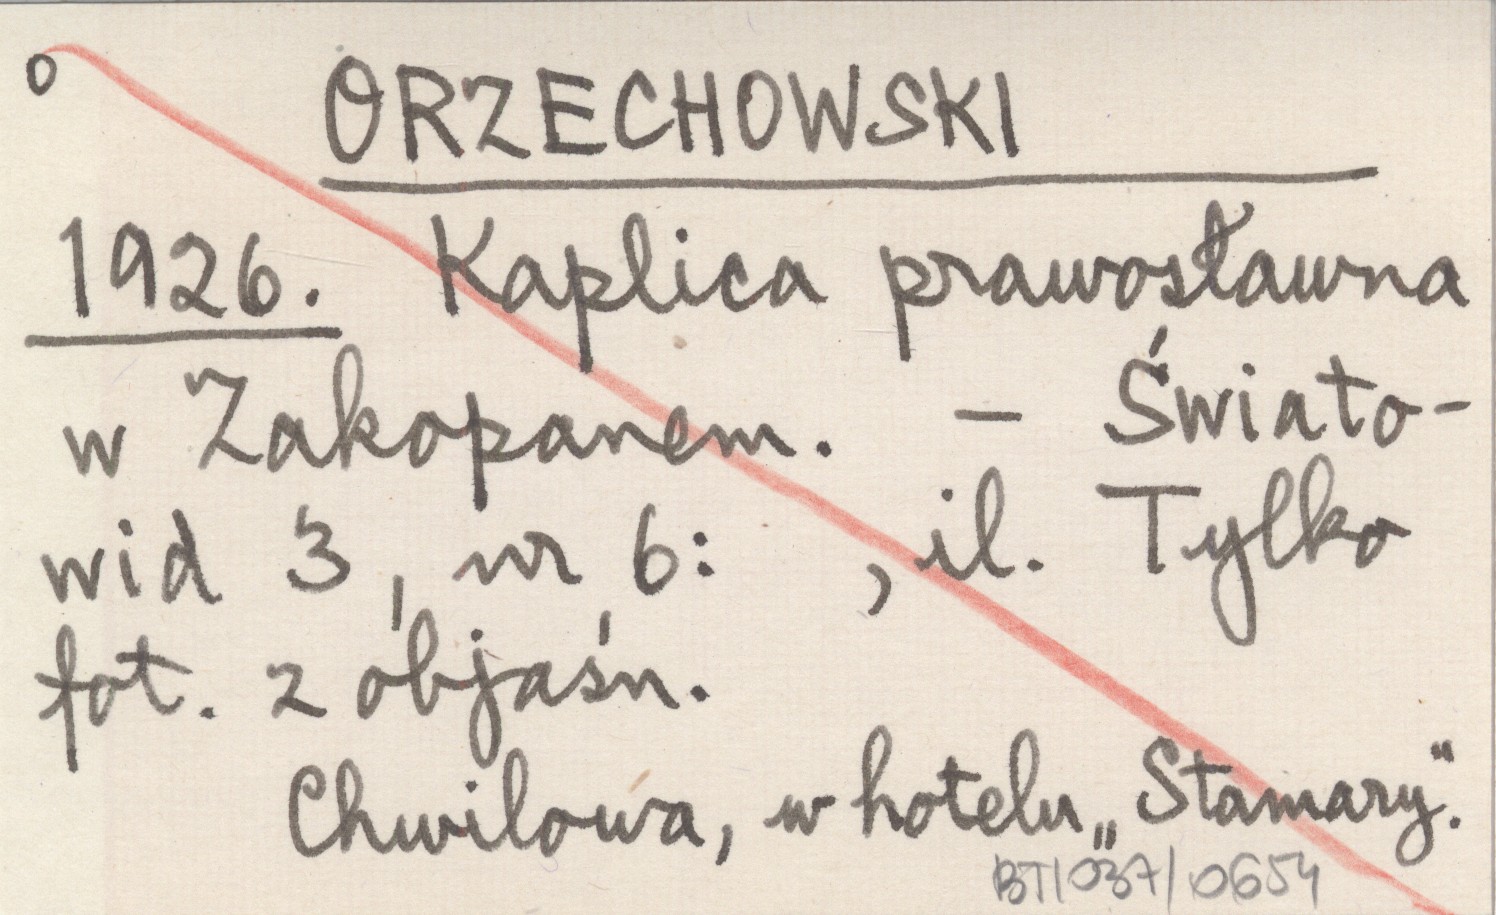 o ORZECHOWSKI
1926. Kaplica prawosławna
w Zakopanem. – Świato-
wid 3, nr 6: , il. Tylko
fot. z objaśn.
Chwilowa, w hotelu „Stamary".
BT/037/0654